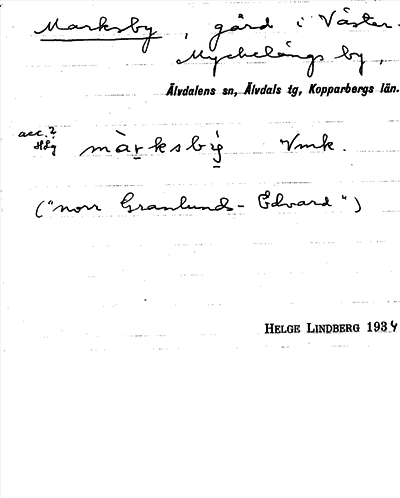 Marksby, gård i Väster-
Myckelängs by,
Älvdalens sn, Älvdals tg, Kopparbergs län.
acc. 2
HLg
mà̀rksbý Vmk.
("norr Granlunds-Edvard")
HELGE LINDBERG 1934